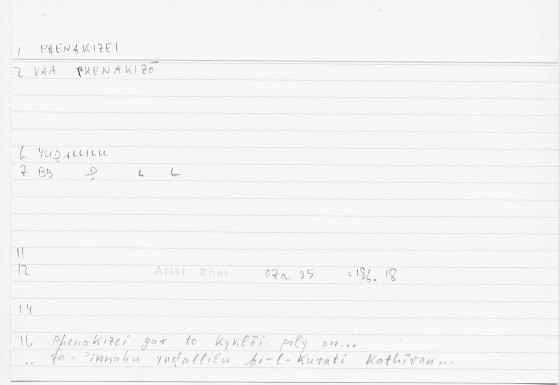 1 PHENAKIZEI
2 VAA PHENAKIZŌ
6 YUḌALLILU
7 BB Ḍ L L
11
12 Arist Rhet 07a 35 = 186, 18
14
16 Phenakizei gar to kyklōi poly on...
.. fa-'innahu yuḍallilu bi-l-kurati kathīran...